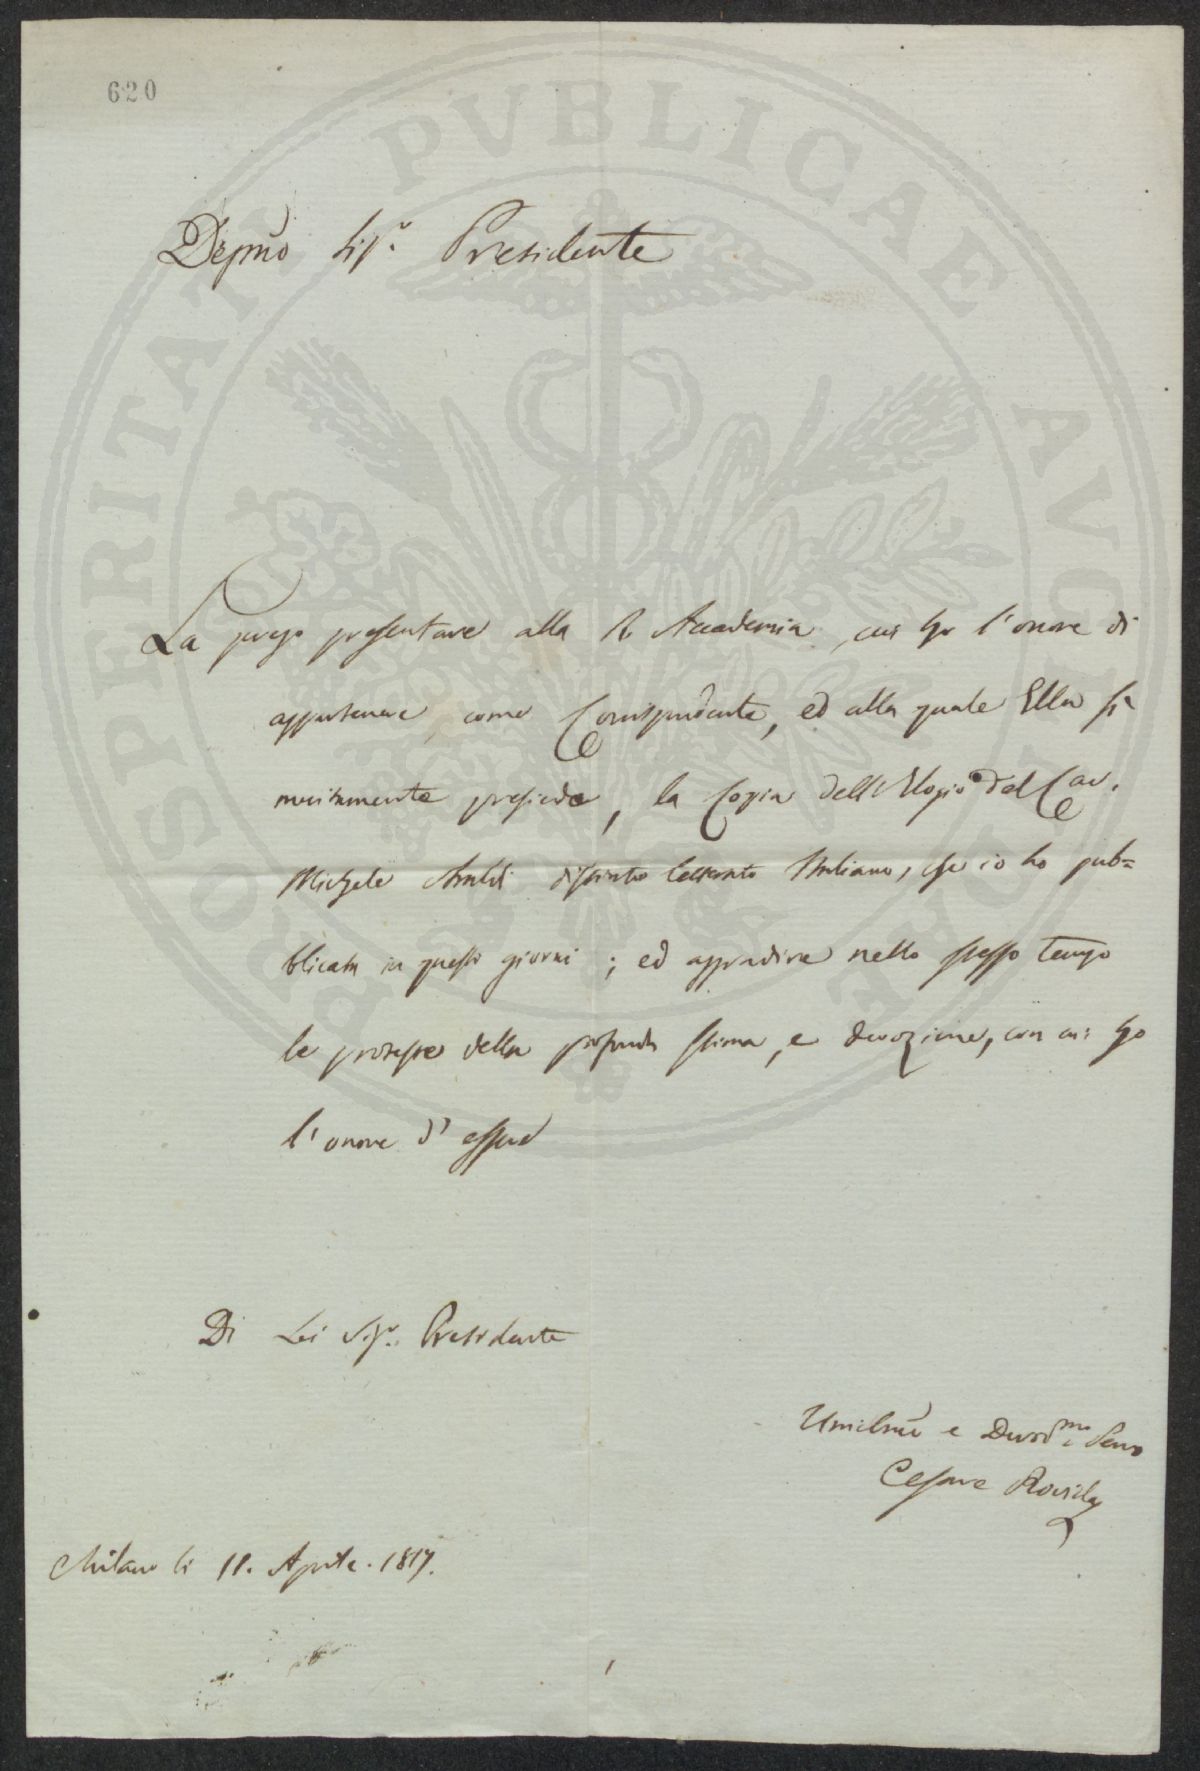 620
PROSPERITATI PVBLICAE AVGENDAE
Degmo Sigr. Presidente
La prego presentare alla R Accademia, cui ho l'onore di
appartenere come Corrispondente, ed alla quale Ella sì
meritamente presiede, la Copia dell'Elogio del Cav.
Michele Araldi distinto letterato Italiano, che io ho pub=
blicata in questi giorni ; ed aggradire nello stesso tempo
le proteste della profonda stima, e devozione, con cui ho
l'onore d'essere
Di Lei Sigr. Presidente
Umilmo e Devotmo Servo
Cesare Rovida
Milano li 11. Aprile. 1817.